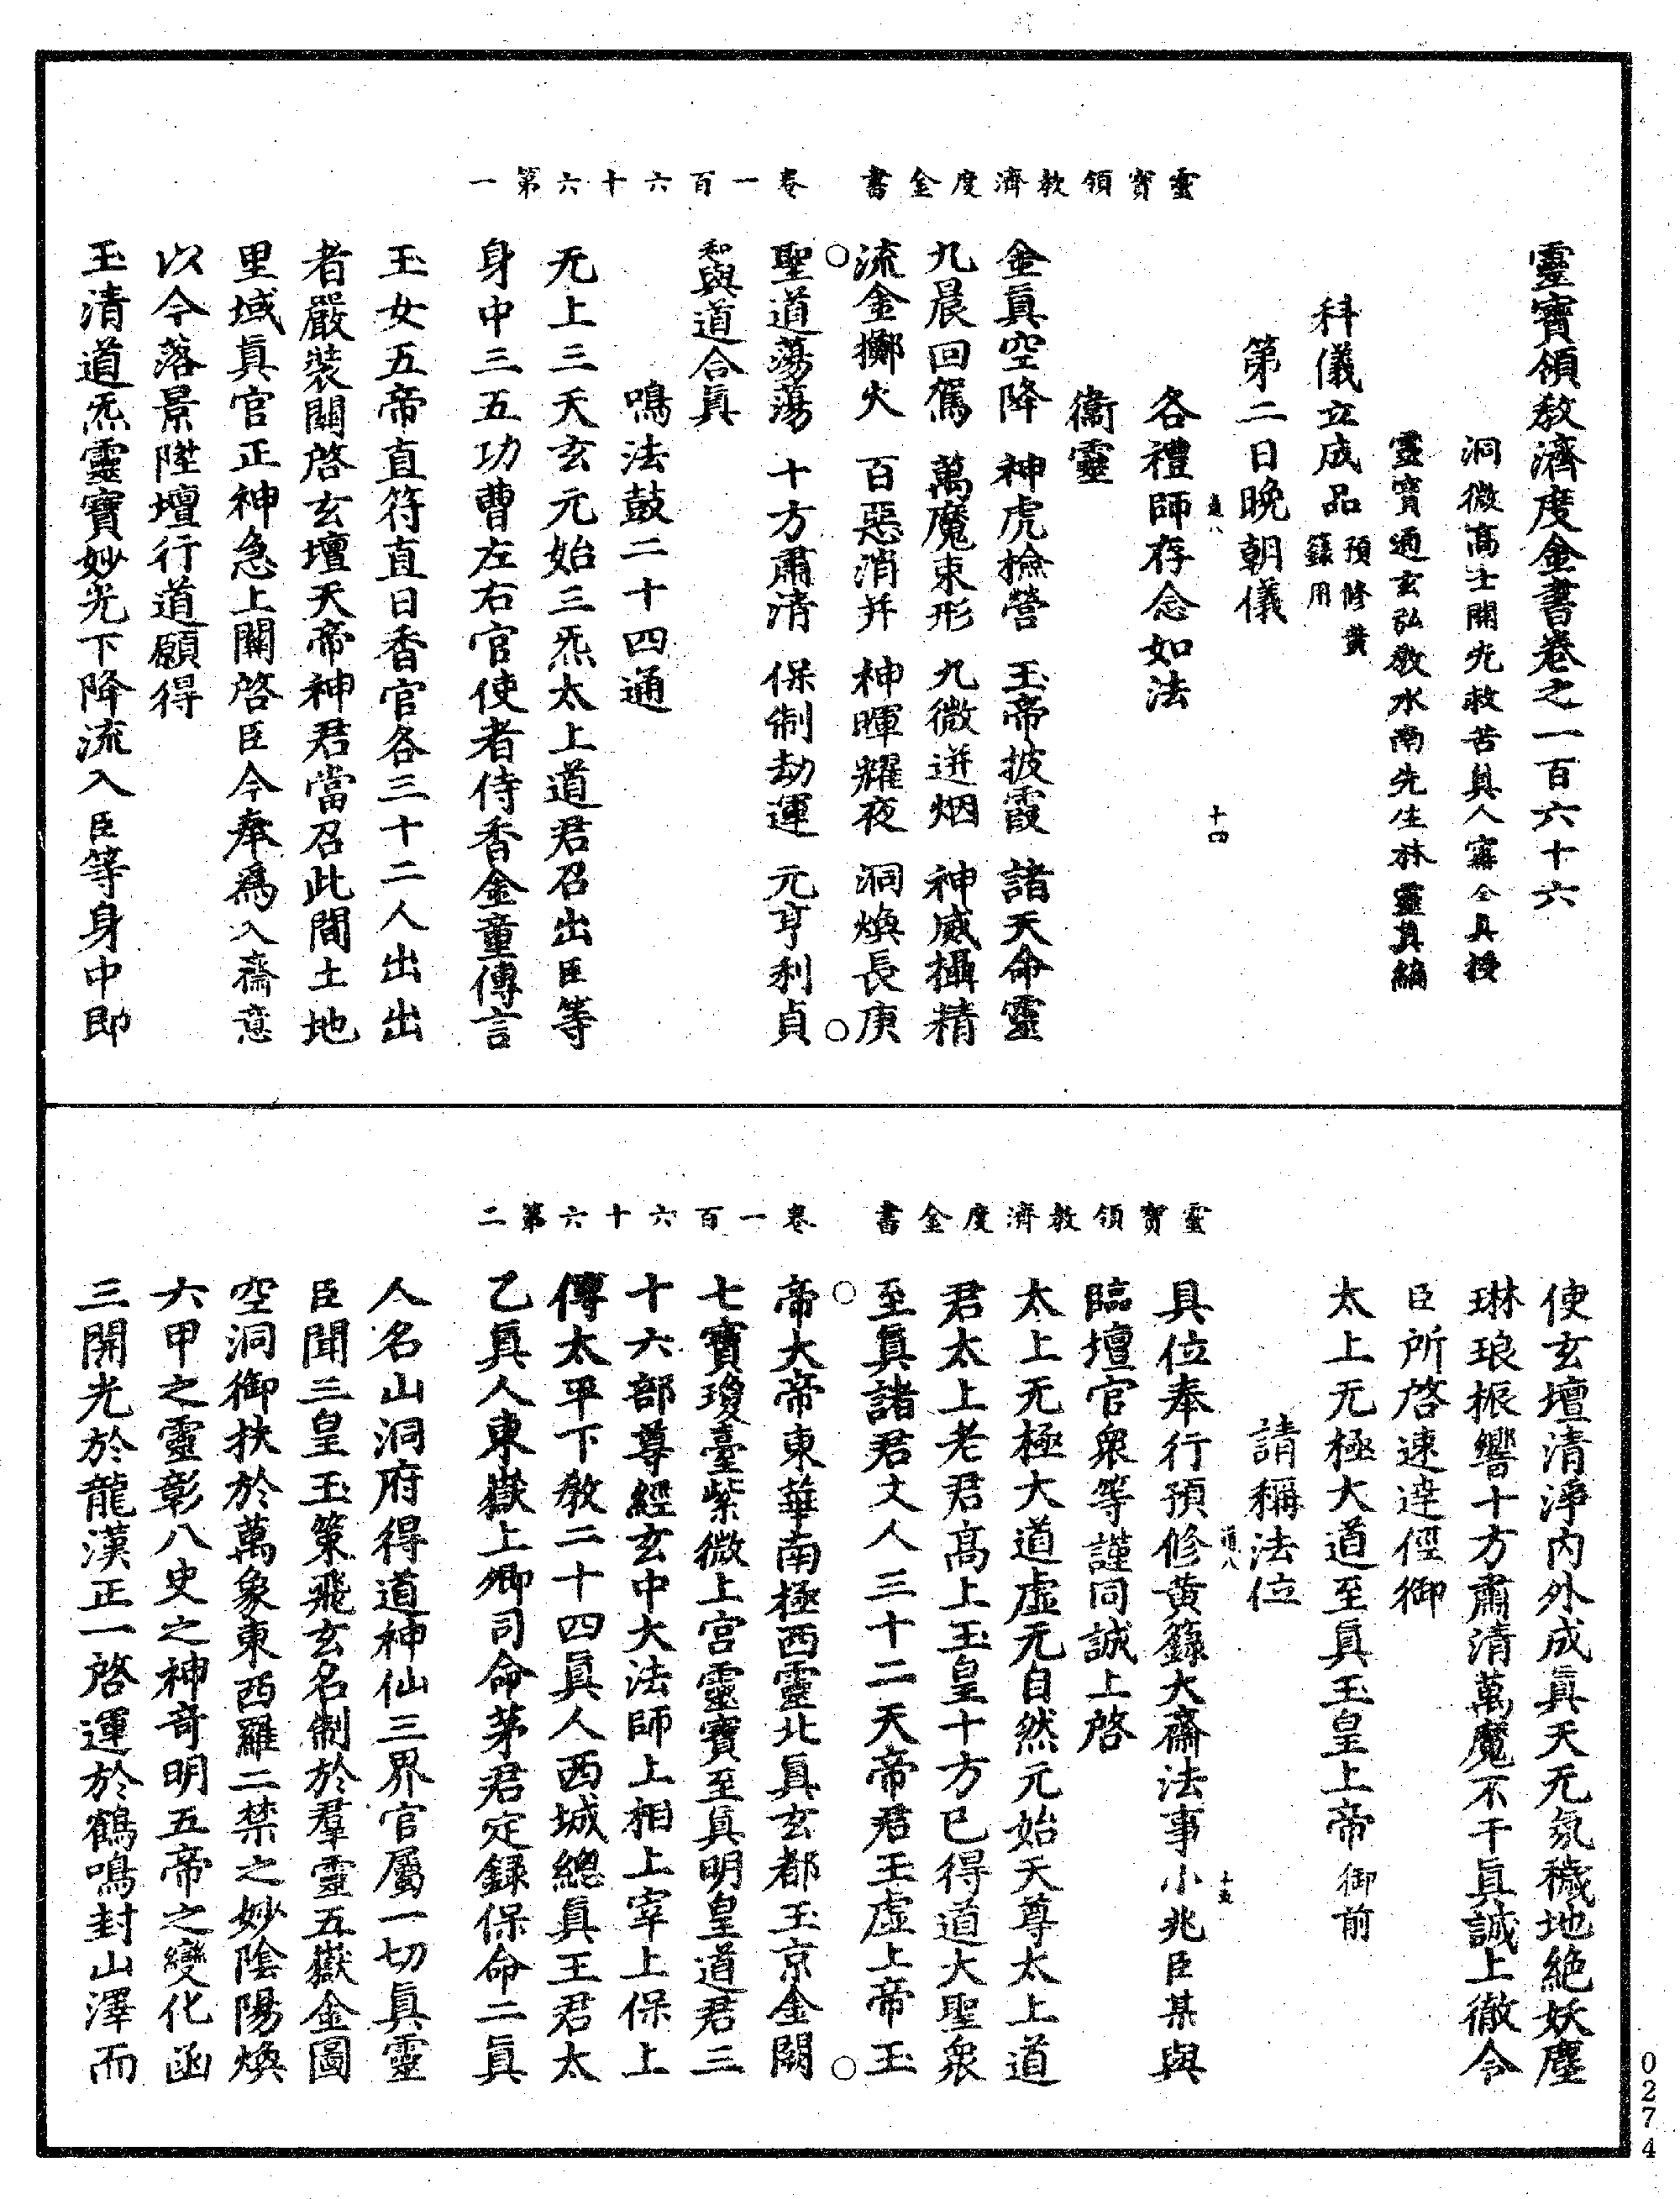 靈寶領教濟度金書卷之一百六十六
洞微高士開光救苦真人甯全真授
靈寶通玄弘教水南先生林靈真編
科儀立成品預修黃籙用
第二日晚朝儀
各禮師存念如法
衞靈
金真空降 神虎撿營 玉帝披霞 諸天命靈
九晨回駕 萬魔束形 九微迸烟 神威攝精
流金擲火 百惡消并 神暉耀夜 洞煥長庚
聖道蕩蕩 十方肅清 保制劫運 元亨利貞
和與道合真
鳴法鼓二十四通
无上三天玄元始三炁太上道君召出臣等
身中三五功曹左右官使者侍香金童傳言
玉女五帝直符直日香官各三十二人出出
者嚴裝關啓玄壇天帝神君當召此間土地
里域真官正神急上關啓臣今奉爲入齋意
以今落景陞壇行道願得
玉清道炁靈寶妙光下降流入臣等身中即
靈寶領教濟度金書 卷一百六十六第一
十四
使玄壇清淨內外成真天无氛穢地絶妖塵
琳琅振響十方肅清萬魔不干真誠上徹令
臣所啓速達徑御
太上无極大道至真玉皇上帝御前
請稱法位
具位奉行預修黃籙大齋法事小兆臣某與
臨壇官衆等謹同誠上啓
太上无極大道虛元自然元始天尊太上道
君太上老君高上玉皇十方已得道大聖衆
至真諸君丈人三十二天帝君玉虛上帝玉
帝大帝東華南極西靈北真玄都玉京金闕
七寶瓊臺紫微上宮靈寶至真明皇道君三
十六部尊經玄中大法師上相上宰上保上
傅太平下教二十四真人西城總真王君太
乙真人東嶽上卿司命茅君定録保命二真
人名山洞府得道神仙三界官屬一切真靈
臣聞三皇玉策飛玄名制於羣靈五嶽金圖
空洞御扶於萬象東西羅二禁之妙陰陽煥
六甲之靈彰八史之神奇明五帝之變化函
三開光於龍漢正一啓運於鶴鳴封山澤而
靈寶領教濟度金書 卷一百六十六第二
十五
0274